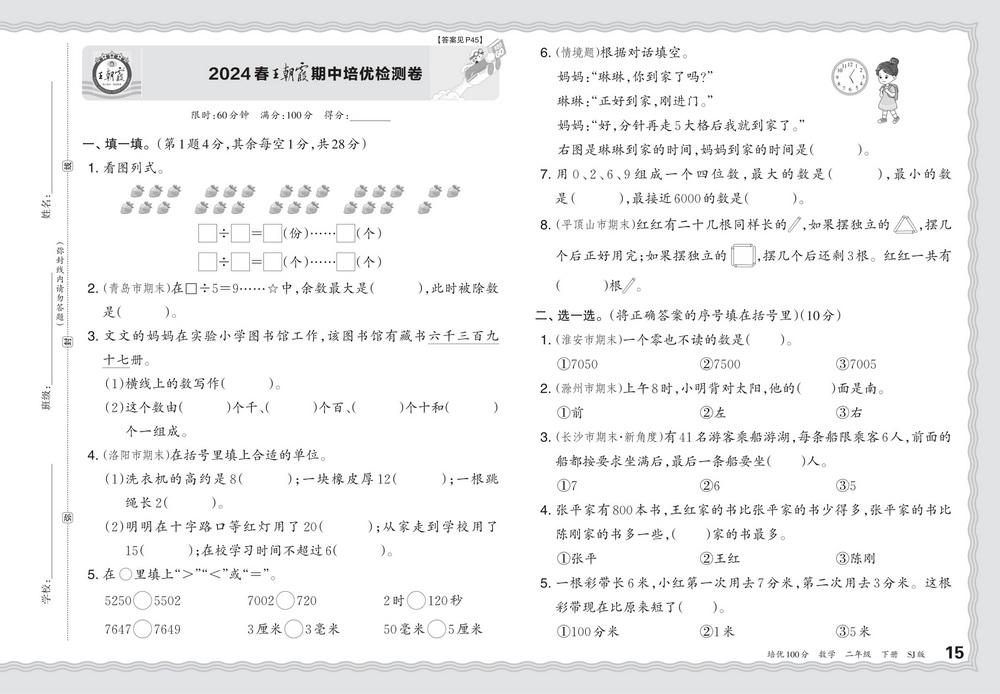 【答案见P45】
王朝霞
2024春王朝霞期中培优检测卷
限时:60分钟 满分:100分 得分:
一、填一填。(第1题4分,其余每空1分,共28分)
1. 看图列式。
□÷□=□(份)……□(个)
□÷□=□(个)……□(个)
2. (青岛市期末)在□÷5=9……☆中,余数最大是( ),此时被除数
是( )。
3. 文文的妈妈在实验小学图书馆工作,该图书馆有藏书六千三百九
十七册。
(1)横线上的数写作( )。
(2)这个数由( )个千、( )个百、( )个十和( )
个一组成。
4. (洛阳市期末)在括号里填上合适的单位。
(1)洗衣机的高约是8( );一块橡皮厚12( );一根跳
绳长2( )。
(2)明明在十字路口等红灯用了20( );从家走到学校用了
15( );在校学习时间不超过6( )。
5. 在○里填上“>”“<”或“=”。
5250○5502 7002○720 2时○120秒
7647○7649 3厘米○3毫米 50毫米○5厘米
6. (情境题)根据对话填空。
妈妈:“琳琳,你到家了吗?”
琳琳:“正好到家,刚进门。”
妈妈:“好,分针再走5大格后我就到家了。”
右图是琳琳到家的时间,妈妈到家的时间是( )。
7. 用0、2、6、9组成一个四位数,最大的数是( ),最小的数
是( ),最接近6000的数是( )。
8. (平顶山市期末)红红有二十几根同样长的,如果摆独立的,摆几
个后正好用完;如果摆独立的,摆几个后还剩3根。红红一共有
( )根。
二、选一选。(将正确答案的序号填在括号里)(10分)
1. (淮安市期末)一个零也不读的数是( )。
①7050 ②7500 ③7005
2. (滁州市期末)上午8时,小明背对太阳,他的( )面是南。
①前 ②左 ③右
3. (长沙市期末·新角度)有41名游客乘船游湖,每条船限乘客6人,前面的
船都按要求坐满后,最后一条船要坐( )人。
①7 ②6 ③5
4. 张平家有800本书,王红家的书比张平家的书少得多,张平家的书比
陈刚家的书多一些,( )家的书最多。
①张平 ②王红 ③陈刚
5. 一根彩带长6米,小红第一次用去7分米,第二次用去3分米。这根
彩带现在比原来短了( )。
①100分米 ②1米 ③5米
学校:
班级:
姓名:
弥
封
线
(弥封线内请勿答题)
培优100分 数学 二年级 下册 SJ版 15